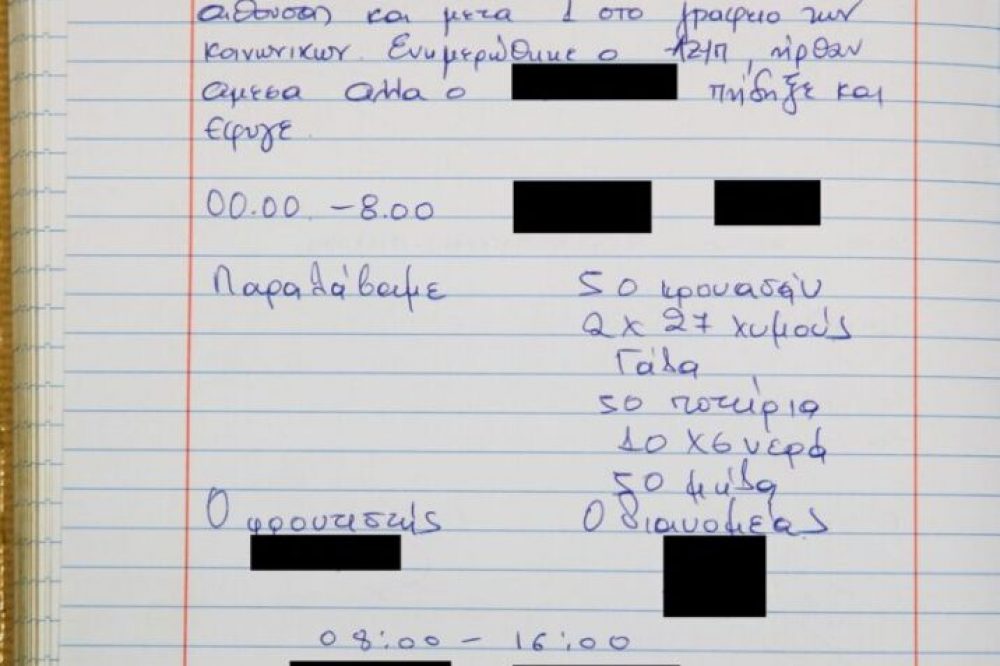 αίθουσα και μετα 1 στο γραφειο των
κοινωνικων. Ενημερώθηκε ο , ηρθαν
αμεσα αλλα ο πήδηξε και
εφυγε.
00.00 - 8.00
Παραλάβαμε 50 κρουασάν
2 x 27 χυμούς
Γάλα
50 ποτήρια
10 X6 νερά
50 μήλα
Ο φροντιστής Ο διανομέας
08:00 - 16:00